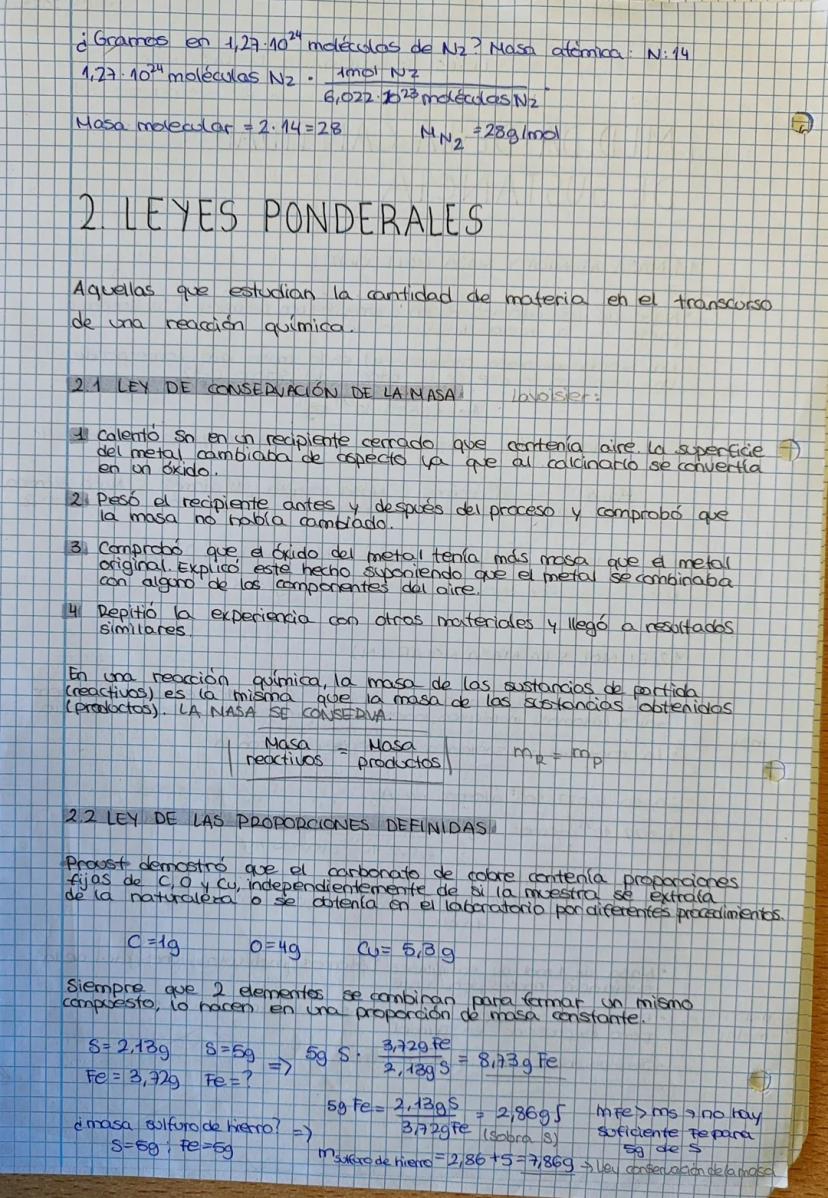 ¿Gramos en 1,27·10²⁴ moléculas de N₂? Masa atómica: N:14
1,27·10²⁴ moléculas N₂ · 1mol N₂ / 6,022·10²³ moléculas N₂ ·
Masa molecular = 2·14=28 M N₂ = 28g/mol
2. LEYES PONDERALES
Aquellas que estudian la cantidad de materia en el transcurso
de una reacción química.
2.1 LEY DE CONSERVACIÓN DE LA MASA Lavoisier:
1 Calentó Sn en un recipiente cerrado que contenía aire. La superficie
del metal cambiaba de aspecto ya que al calcinarlo se convertía
en un óxido.
2 Pesó el recipiente antes y después del proceso y comprobó que
la masa no había cambiado.
3 Comprobó que el óxido del metal tenía más masa que el metal
original. Explicó este hecho suponiendo que el metal se combinaba
con alguno de los componentes del aire.
4 Repitió la experiencia con otros materiales y llegó a resultados
similares.
En una reacción química, la masa de las sustancias de partida
(reactivos) es la misma que la masa de las sustancias obtenidas
(productos). LA MASA SE CONSERVA.
Masa reactivos = Masa productos mR = mP
2.2 LEY DE LAS PROPORCIONES DEFINIDAS
Proust demostró que el carbonato de cobre contenía proporciones
fijas de C, O y Cu, independientemente de si la muestra se extraía
de la naturaleza o se obtenía en el laboratorio por diferentes procedimientos.
C=1g O=4g Cu= 5,3g
Siempre que 2 elementos se combinan para formar un mismo
compuesto, lo hacen en una proporción de masa constante.
S= 2,13g S=5g => 5g S · 3,72g Fe / 2,13g S = 8,73g Fe
Fe = 3,72g Fe=?
5g Fe = 2,13g S / 3,72g Fe = 2,86g S (sobra S) mFe > ms → no hay
suficiente Fe para
5g de S
¿masa sulfuro de hierro? =>
S=5g; Fe=5g
m sulfuro de hierro = 2,86+5=7,86g → Ley conservación de la masa